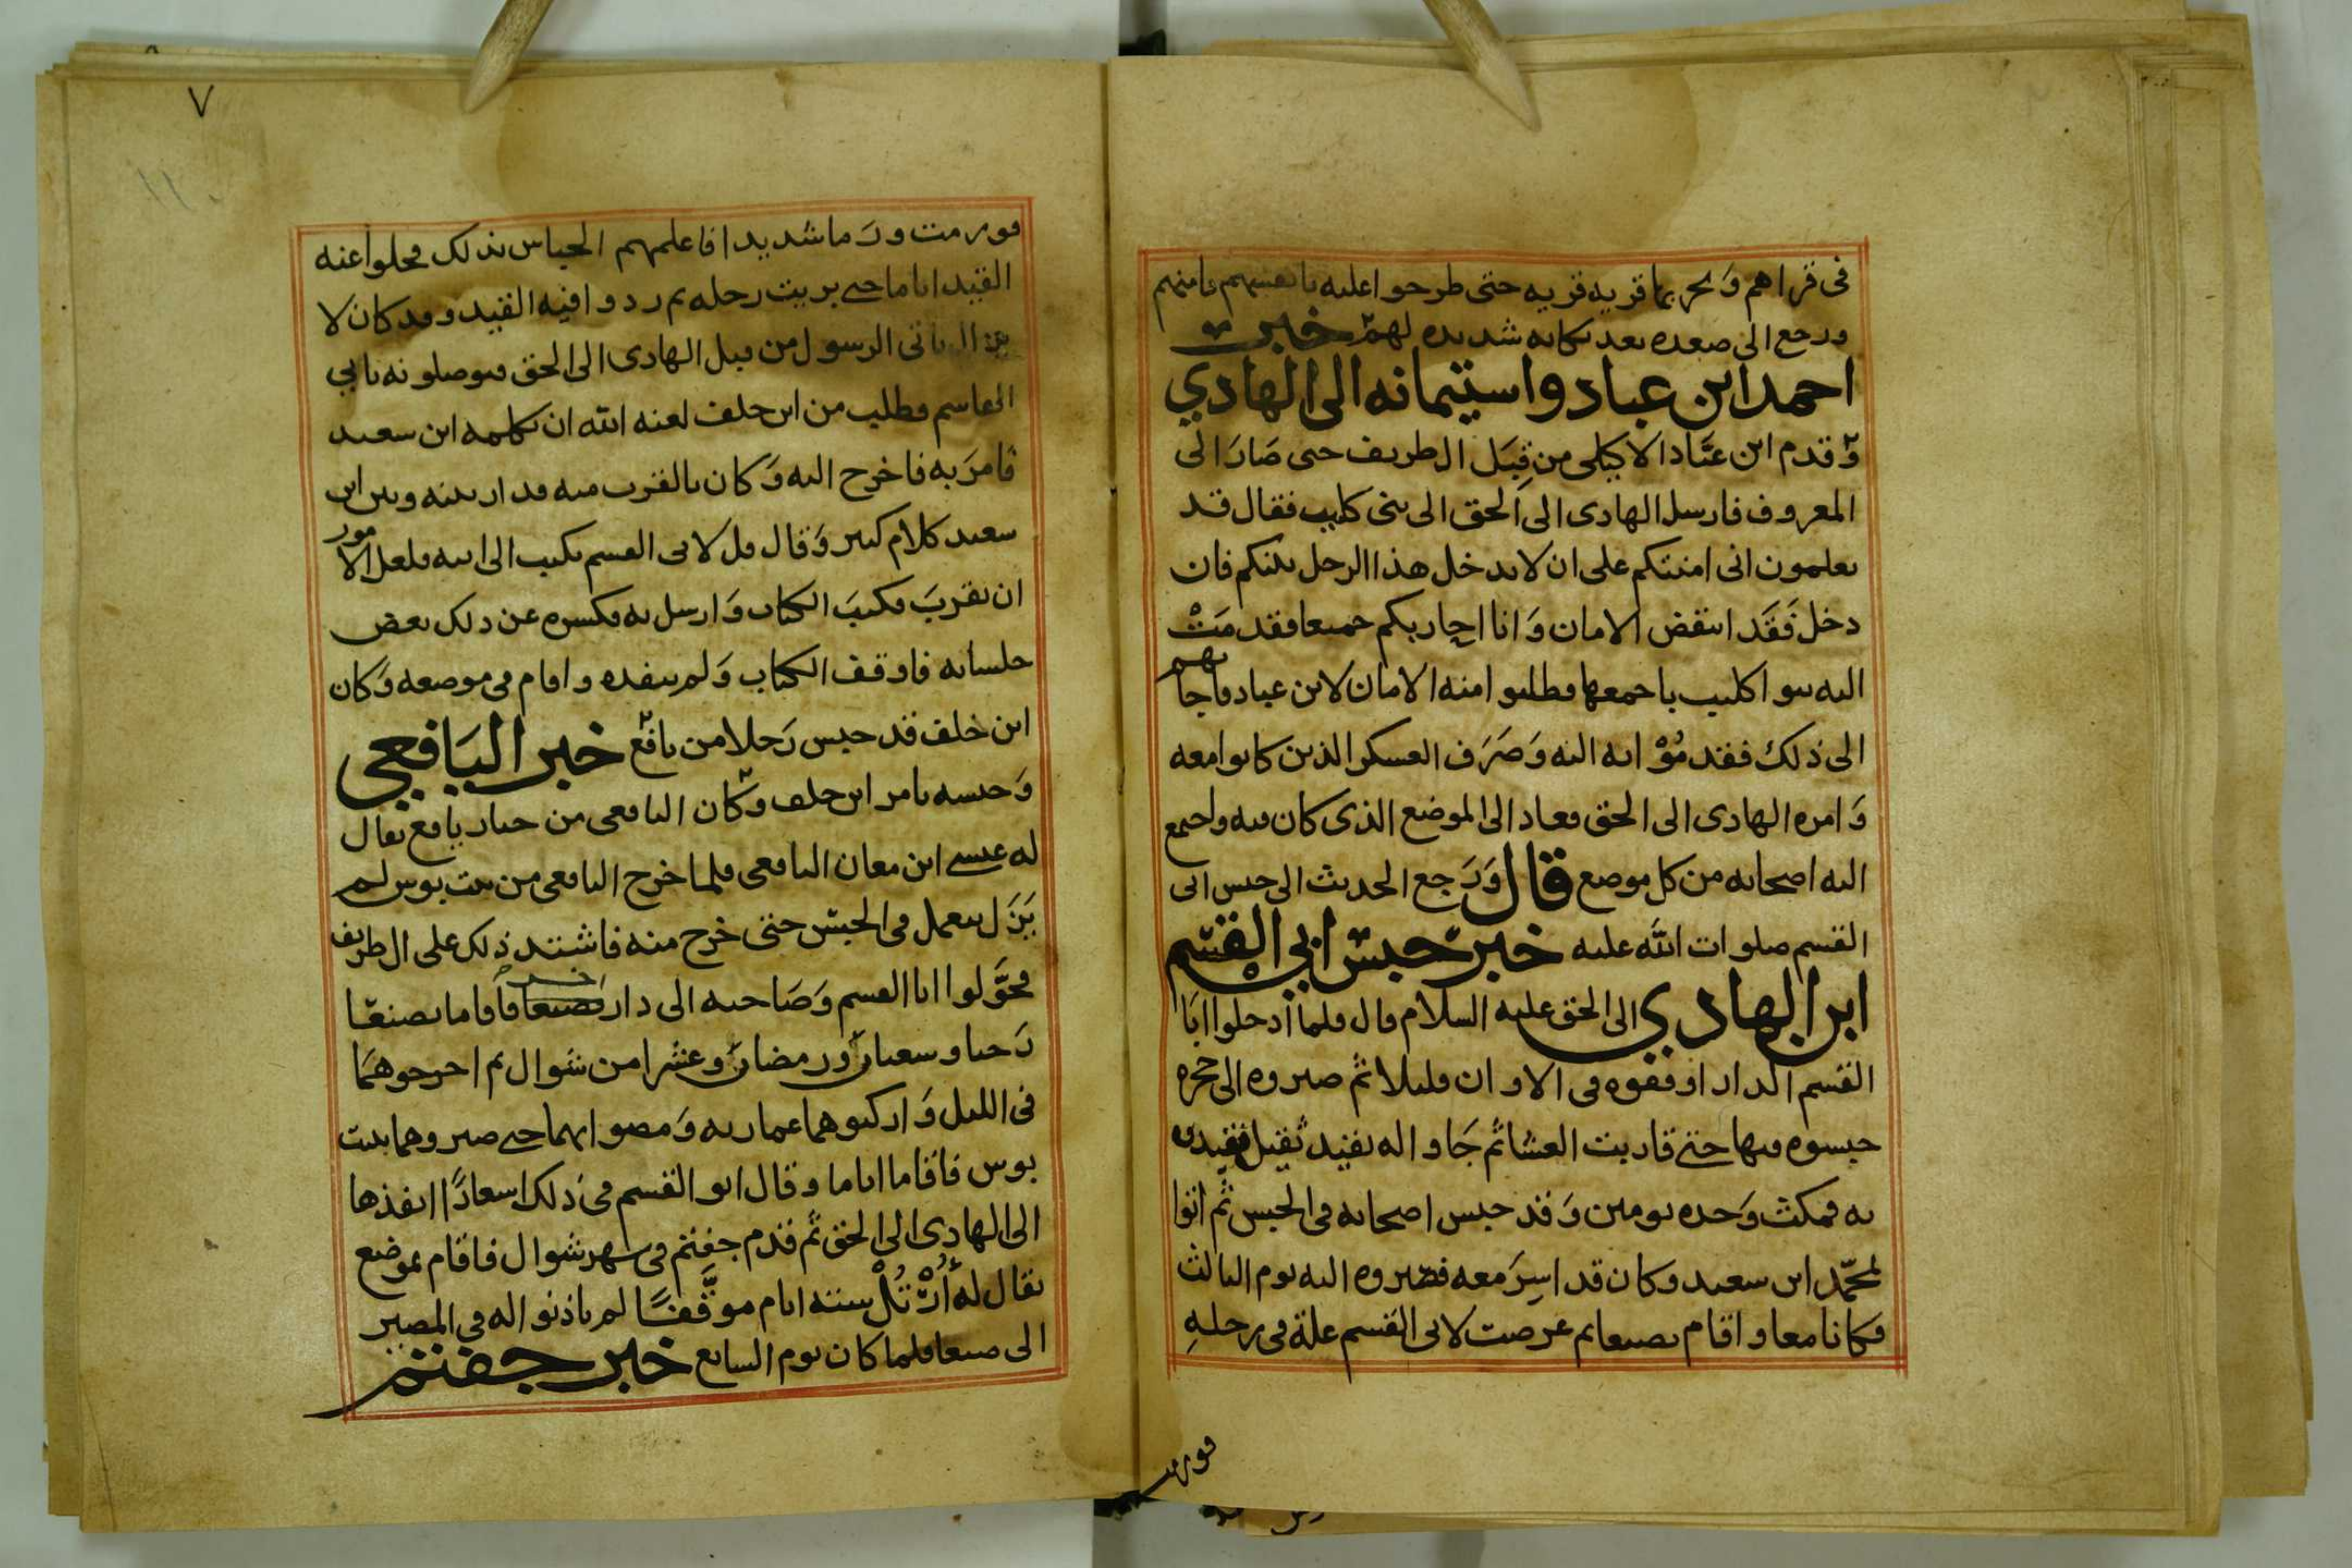 في قراهم وَيحربها قريه قريه حتى طرحوا عليه بانفسهم فامنهم
ورجع الى صعده بعد نكايه شديده لهم خبر
احمد ابن عباد واستيمانه الى الهادي
وَقدم ابن عبَّاد الاكيلي من قِبَل ال طريف حتى صَارَ الى
المعروف فارسل الهادى الى الحق الى بنى كليب فقال قد
تعلمون انى امنتكم على ان لا يدخل هذا الرجل بلدكم فان
دخل فَقَد انتقض الامان وَانا احاربكم جميعا فقدمَتْ
اليه بنوا كليب باجمعها وطلبوا منه الامان لابن عباد فاجابهم
الى ذلك فقدمُوْا به اليه وَصَرَف العسكر الذين كانوا معه
وَامره الهادى الى الحق فعاد الى الموضع الذى كان فيه واجتمع
اليه اصحابه من كل موضع قال وَرَجع الحديث الى حبس ابى
القسم صلوات الله عليه خبر حبس ابي القسم
ابن الهادي الى الحق عليه السلام قال فلما ادخلوا ابَا
القسم الدار اوقفوه في الاوان قليلا ثم صيروه الى حجره
حبسوه فيها حتى قاربت العشا ثم جَاوا له بقيد ثقيل فقيدوه
به فمكث وَحده يومين وَقد حبس اصحابه في الحبس ثم اتوا
لمحمّد ابن سعيد وكان قد اسِرَ معه فصيروه اليه يوم الثالث
فكانا معا واقام بصنعا ثم عرضت لابى القسم علة فى رجلهِ
فورمت
٧
١١٠
فورمت ورَما شديدا فاعلمهم الحباس بذلك فحلوا عنه
القيد اياما حتى بريت رجله ثم ردوا فيه القيد وقد كان لا
يزال ياتى الرسول من قبل الهادى الى الحق فيوصلونه بابي
القاسم فطلب من ابن خلف لعنه الله ان يكلمه ابن سعيد
فامرَ به فاخرج اليه وَكان بالقرب منه فدار بينه وبين ابن
سعيد كلام كثير وَقال قل لابى القسم يكتب الى ابيه فلعل الامور
ان تقربَ فكتبَ الكتاب وَارسل به فكسره عن ذلك بعض
جلسائه فاوقف الكتاب وَلم ينفده واقام في موضعه وَكان
ابن خلف قد حبس رَجلا من يافع خبر اليَافعي
وَحبسه بامر ابن خلف وَكان اليافعى من خيار يافع يقال
له عيسى ابن معان اليافعى فلما خرج اليافعى من بيت بوس لم
يَزَل يعمل في الحبس حتى خرج منه فاشتد ذلك على ال طريف
فحوَّلوا ابا القسم وَصَاحبه الى دار بصنعا فاقاما بصنعَا
رَجبا وشعبان ورمضان وعشرا من شوال ثم اخرجوهمَا
فى الليل وَاركبوهما عماريه وَمضوا بهما حتى صيروهما ببيت
بوس فاقاما اياما وقال ابو القسم في ذلك اسعارًا انفذها
الى الهادى الى الحق ثم قدم جفتم في شهر شوال فاقام بموضع
يقال له أُرْتُلْ ستة ايام موقَّفًا لم ياذنوا له في المصير
الى صنعا فلما كان يوم السابع خبر جفتم